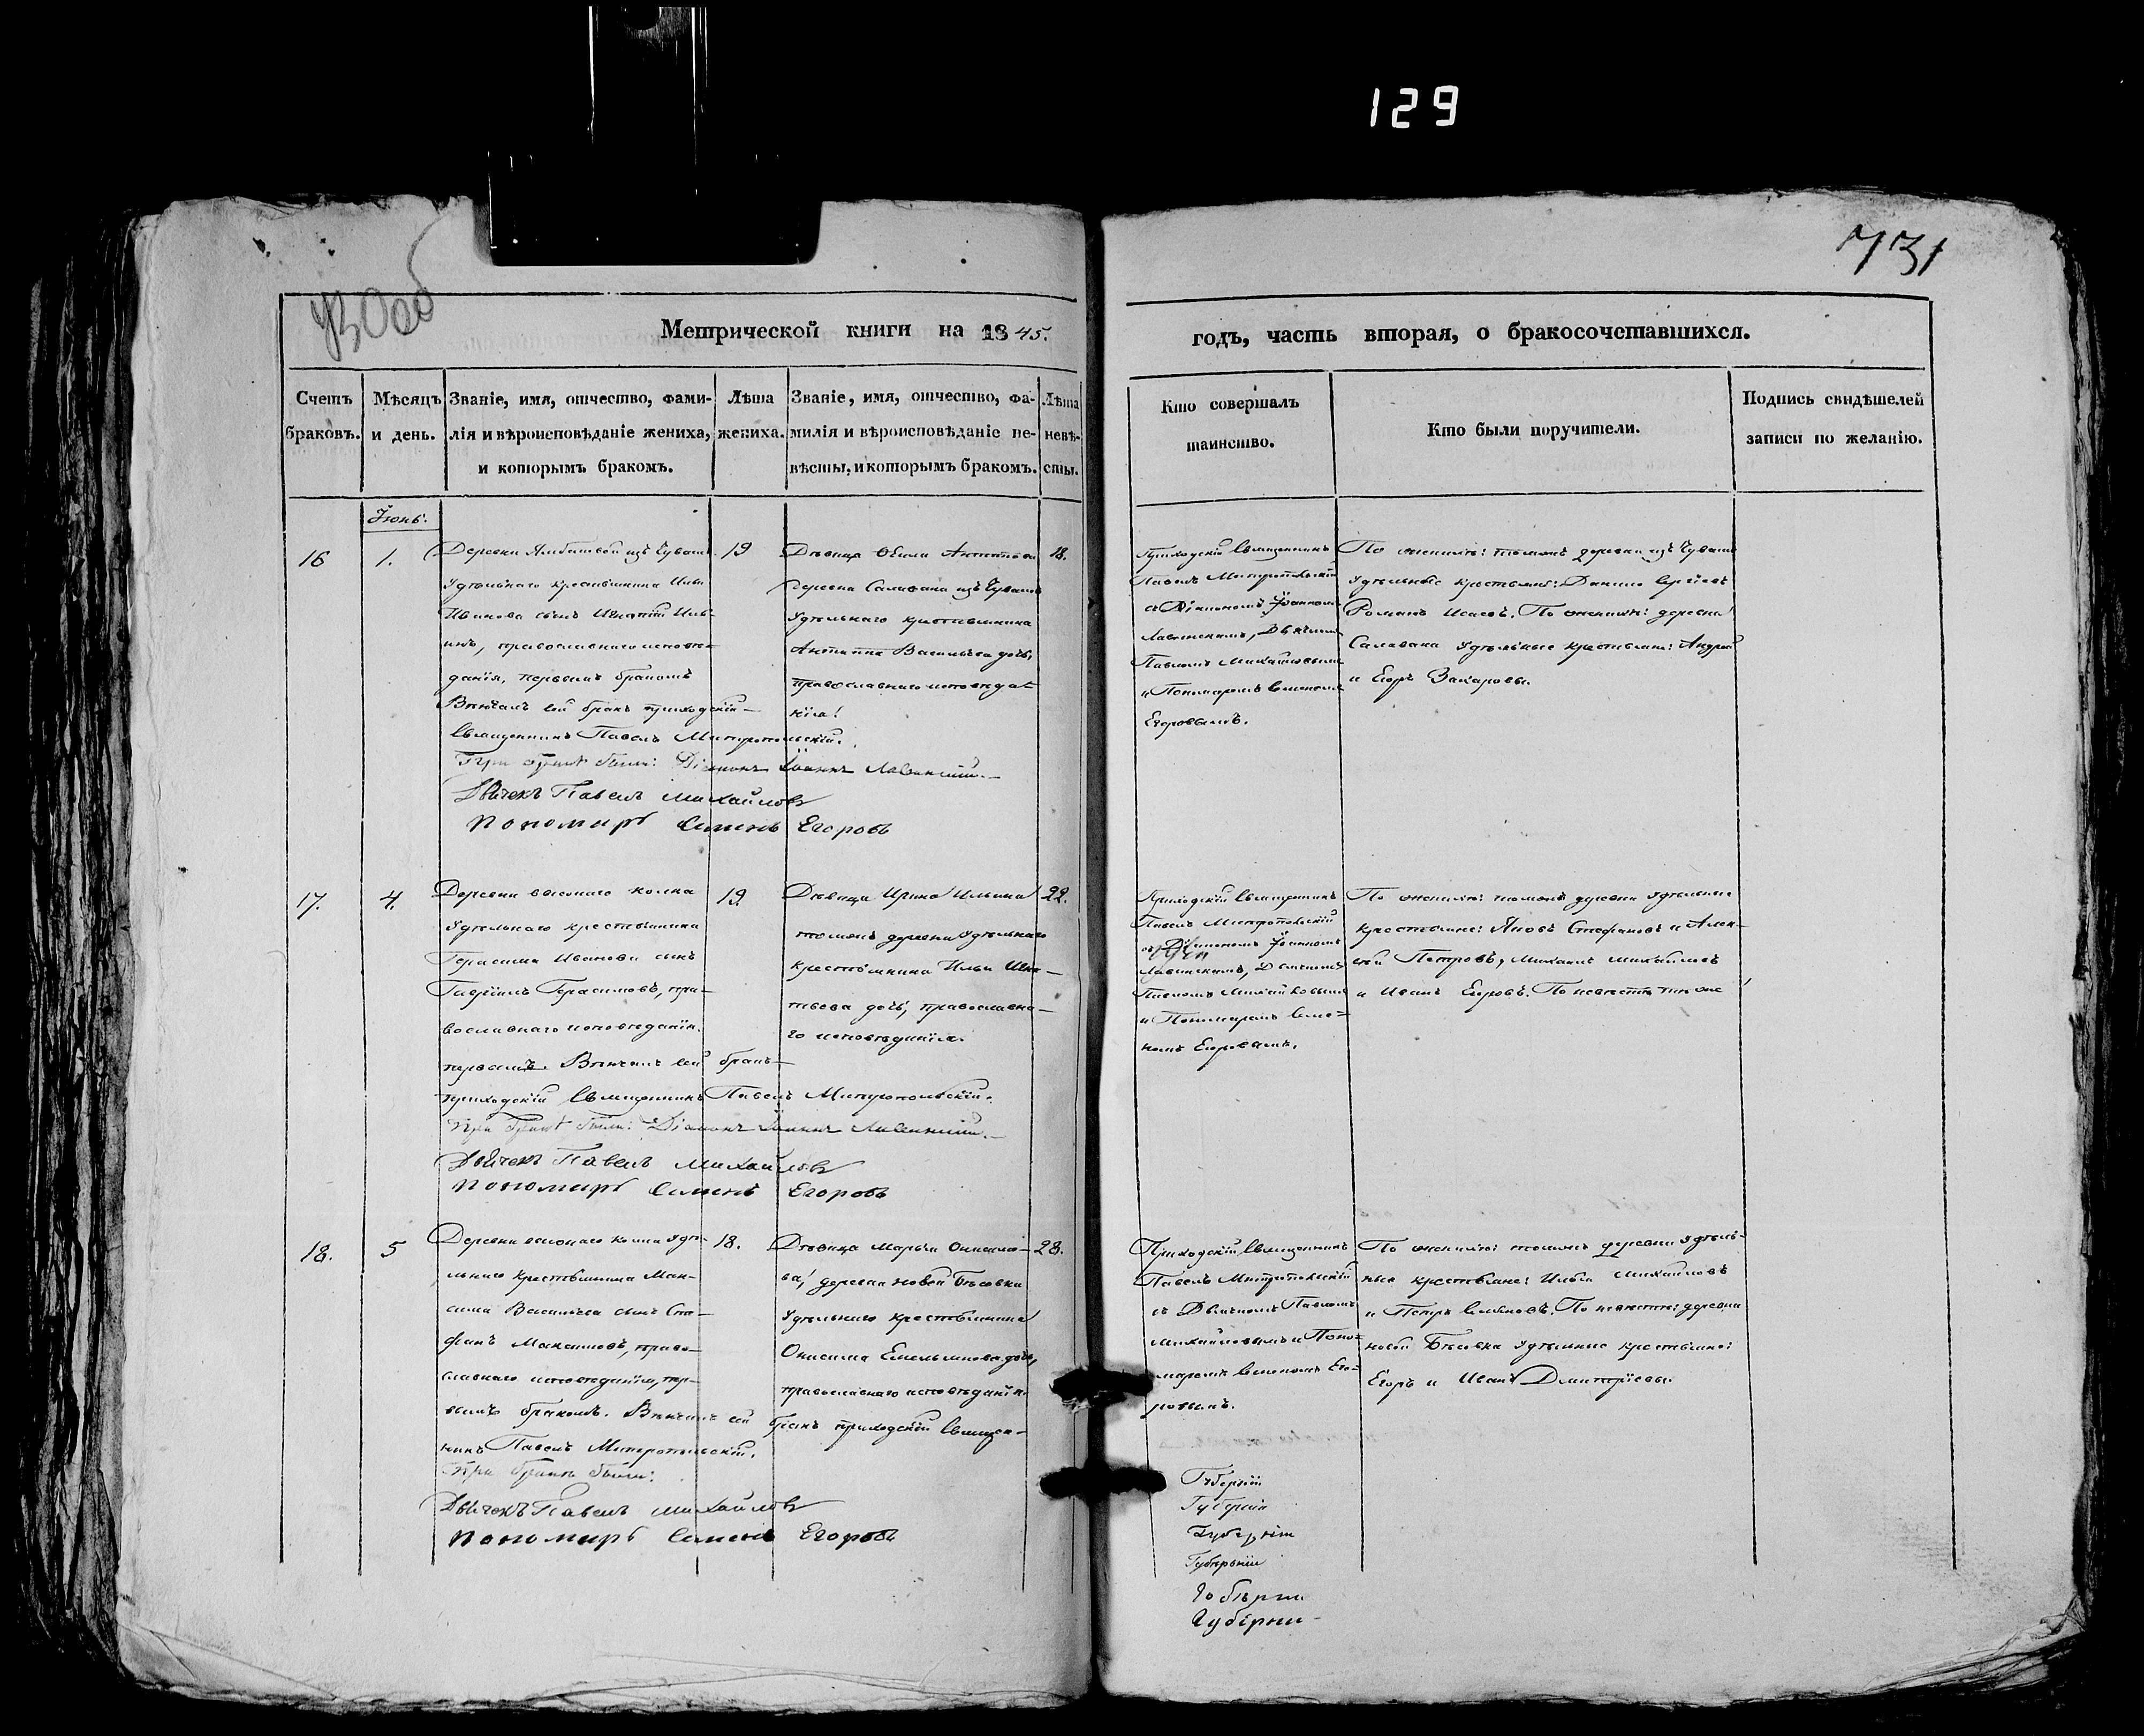 129
731
Метрической книги на 1845.
годъ, часть вторая, о бракосочетавшихся.
Счетъ браковъ.
Мѣсяцъ и день.
Званіе, имя, отчество, фами-
лія и вѣроисповѣданіе жениха,
и которымъ бракомъ.
Лѣта
жениха.
Званіе, имя, отчество, фа-
милія и вѣроисповѣданіе не-
вѣсты, и которымъ бракомъ.
Лѣта
невѣ-
сты.
Кто совершалъ
таинство.
Кто были поручители.
Подпись свидѣтелей
записи по желанію.
Іюнь.
16
1.
Деревни изъ Чувашъ
Удѣльнаго крестьянина Ильи
Иванова сынъ Игнатій Иль-
инъ, православнаго исповѣ-
данія, первымъ бракомъ
Вѣнчалъ сей бракъ приходскій
Священникъ Павелъ Митропольскій.
При бракѣ были: Діаконъ Іоаннъ
Дьячекъ Павелъ Михайловъ
Пономарь Семенъ Егоровъ
19
Дѣвица Антипова
деревни Салавана изъ Чувашъ
Удѣльнаго крестьянина
Антипа Васильева дочь,
православнаго исповѣда-
нія.
18.
Приходскій Священникъ
Павелъ Митропольскій
съ Діакономъ Іоанномъ
Дьячкомъ
Павломъ Михайловымъ
и Пономаремъ Семеномъ
Егоровымъ.
По женихѣ: тоѧжъ деревни изъ Чувашъ
Удѣльные крестьяне: Данило Сергѣевъ
Романъ Исаевъ. По женихѣ: деревни
Салавана Удѣльные крестьяне: Андрей
и Егоръ Захаровы.
17.
4.
Деревни высокаго колка
Удѣльнаго крестьянина
Герасима Иванова сынъ
Гавріилъ Герасимовъ, пра-
вославнаго исповѣданія.
первымъ. Вѣнчалъ сей бракъ
приходскій Священникъ Павелъ Митропольскій.
При бракѣ были: Діаконъ Іоаннъ
Дьячекъ Павелъ Михайловъ
Пономарь Семенъ Егоровъ
19
Дѣвица Ирина Ильина
тоежъ деревни Удѣльнаго
крестьянина Ильи Игна-
тьева дочь, православна-
го исповѣданія.
22.
Приходскій Священникъ
Павелъ Митропольскій
съ Діакономъ Іоанномъ
Дьячкомъ
Павломъ Михайловымъ
и Пономаремъ Семе-
номъ Егоровымъ.
По женихѣ: тоежъ деревни Удѣльные
крестьяне: Яковъ Стефановъ и Алек-
сѣй Петровъ, Михаилъ Михайловъ
и Иванъ Егоровъ. По невѣстѣ тѣ же
18.
5
Деревни высокаго колка Удѣ-
льнаго крестьянина Мак-
сима Васильева сынъ Сте-
фанъ Максимовъ, право-
славнаго исповѣданія, пер-
вымъ бракомъ. Вѣнчалъ сей бракъ приходскій Священ-
никъ Павелъ Митропольскій.
При бракѣ были:
Дьячекъ Павелъ Михайловъ
Пономарь Семенъ Егоровъ
18.
Дѣвица Марья Онисимо-
ва, деревни новой Бѣсовки
Удѣльнаго крестьянина
Онисима Емельянова дочь,
православнаго исповѣданія.
28.
Приходскій Священникъ
Павелъ Митропольскій
съ Дьячкомъ Павломъ
Михайловымъ и Поно-
маремъ Семеномъ Его-
ровымъ.
По женихѣ: тоежъ деревни Удѣль-
ные крестьяне: Илья Михайловъ
и Петръ Семеновъ. По невѣстѣ: деревни
новой Бѣсовки Удѣльные крестьяне:
Егоръ и Иванъ Дмитріевы.
Губерніи
Губернія
Губерніи
Губерніи
Губерни